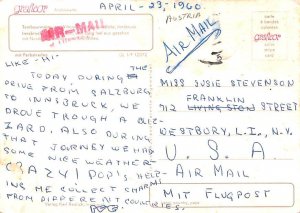 APRIL-23, 1960.
AUSTRIA
AIR-MAIL
AIR MAIL
LIKE-HI-
TODAY, DURING THE
DRIVE FROM SALZBURG
TO INNSBRUCK, WE
DROVE THROUGH A BLIZ-
ZARD, ALSO DURING
THAT JOURNEY WE HAD
SOME NICE WEATHER-
CRAZY! POP'S HELP-
ING ME COLLECT
FROM DIFFERENT COUNTRIES.
MISS SUSIE STEVENSON
FRANKLIN
912 LIVINGSTON STREET
WESTBURY, L.I., N.Y.
U. S. A
AIR MAIL
MIT FLUGPOST